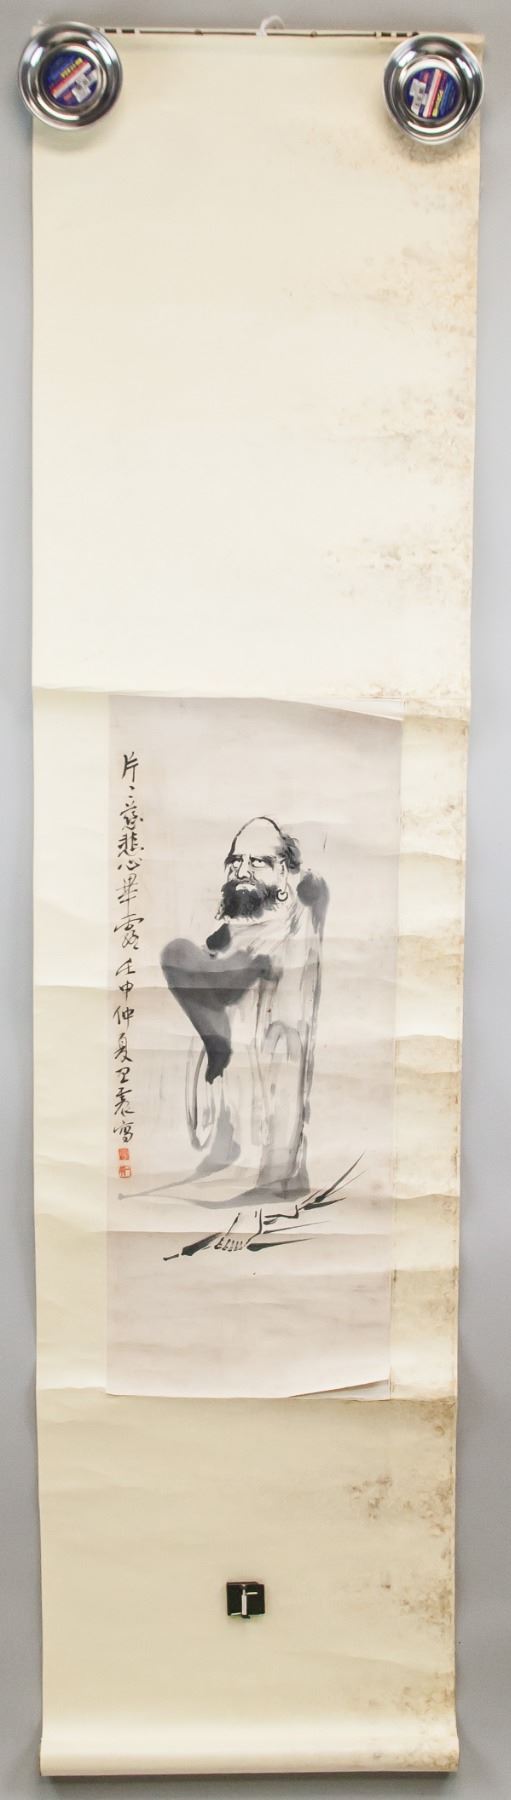 片〻慈悲心畢露 壬申仲夏王震寫